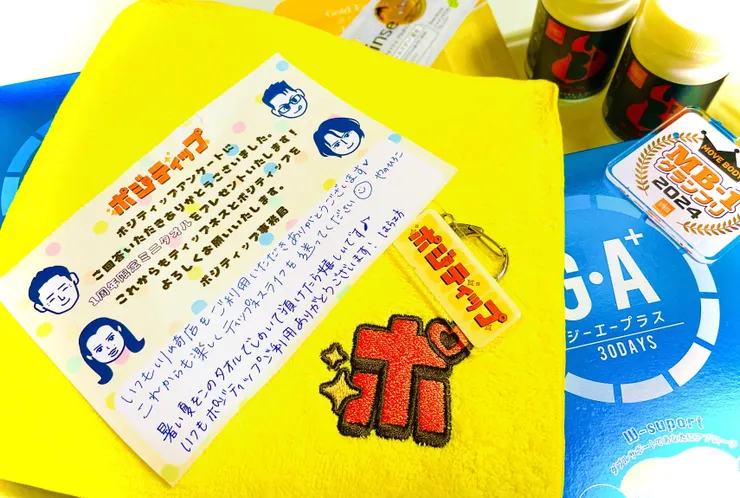 ポジティップ
ポジティップアンケートに
ご回答いただきありがとうございました。
1周年限定ミニタオルをプレゼントいたします!
これからもティップネスとポジティップを
よろしくお願いいたします。
ポジティップ事務局
いつも 店をご利用いただきありがとうございます♡
これからも楽しくティップネスライフを 送ってください☺
暑い夏をこのタオルでしのいで頂けたら嬉しいです♪
いつもポジティップご利用ありがとうございます!
ポジティップ
ポ
MOVE BODY
MB-1
グランプリ
2024
G・A+
ジーエープラス
30DAYS
W-suport
ダブルサポートであなたにアプローチ
Gold
inse